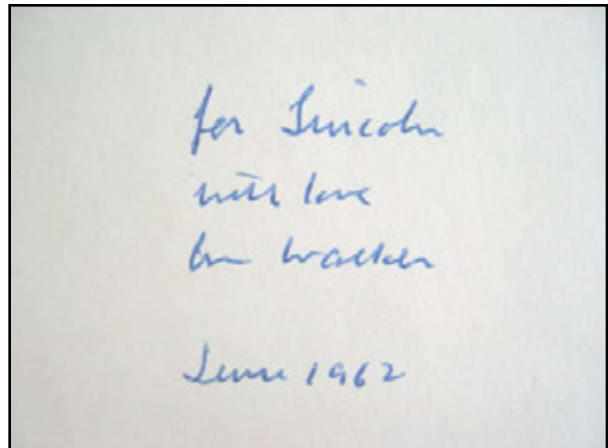 for Lincoln
with love
Walker
June 1962